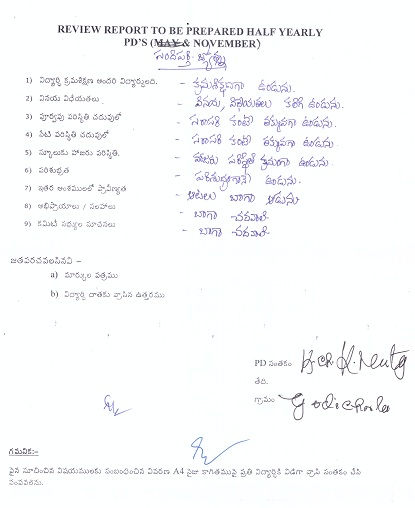 REVIEW REPORT TO BE PREPARED HALF YEARLY
PD'S (MAY & NOVEMBER)
1) విద్యార్థి క్రమశిక్షణ అందరి విద్యార్థులది. - క్రమశిక్షణగా ఉండును.
2) వినయ విధేయతలు - వినయ, విధేయతలు కలిగి ఉండును.
3) పూర్వపు పరిస్థితి చదువులో - సరాసరి కంటే తక్కువగా ఉండును.
4) నేటి పరిస్థితి చదువులో - సరాసరి కంటే తక్కువగా ఉండును.
5) స్కూలుకు హాజరు పరిస్థితి. - హాజరు పరిస్థితి క్రమంగా ఉండును.
6) పరిశుభ్రత - పరిశుభ్రంగానే ఉండును.
7) ఇతర అంశములలో ప్రావీణ్యత - ఆటలు బాగా ఆడును
8) అభిప్రాయాలు / సలహాలు - బాగా చదవాలి
9) కమిటీ సభ్యుల సూచనలు - బాగా చదవాలి
జతపరచవలసినవి -
a) మార్కుల పత్రము
b) విద్యార్థి దాతకు వ్రాసిన ఉత్తరము
PD సంతకం
తేది.
గ్రామం
గమనిక:-
పైన సూచించిన విషయములకు సంబంధించిన వివరణ A4 సైజు కాగితముపై ప్రతి విద్యార్థికి విడిగా వ్రాసి సంతకం చేసి
పంపవలెను.